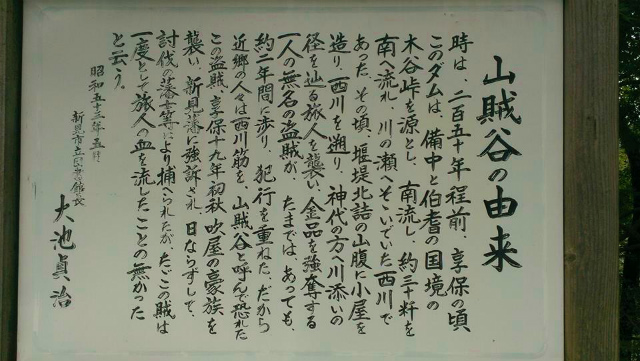 山賊谷の由来
時は、二百五十年程前、享保の頃
このダムは、備中と伯耆の国境の
木谷峠を源とし、南流し、約三十粁を
南へ流れ、川の瀬へそそいでいた西川で
あった。その頃、堰堤北詰の山腹に小屋を
造り、西川を遡り、神代の方へ川添いの
径を辿る旅人を襲い、金品を強奪する
一人の無名の盗賊が、たまでは、あっても、
約二年間に歩り、犯行を重ねた。だから
近郷の人々は西川筋を、山賊谷と呼んで恐れた
この盗賊、享保十九年初秋 吹屋の豪族を
襲い、新見藩に強訴され、日ならずして、
討伐の藩士等により捕へられたが、たゞこの賊は
一度として旅人の血を流したことの無かった
と云う。
昭和五十三年五月
新見市立図書館長
大池貞治